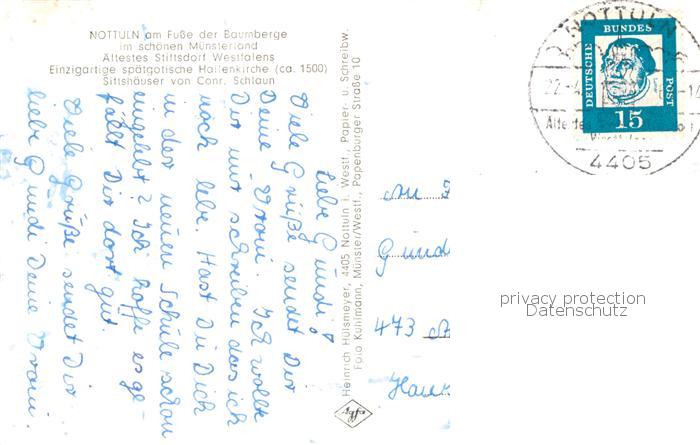 NOTTULN am Fuße der Baumberge
im schönen Münsterland
Ältestes Stiftsdorf Westfalens
Einzigartige spätgotische Hallenkirche (ca. 1500)
Stiftshäuser von Conr. Schlaun
Liebe Gundi!
Viele Grüße sendet Dir
Deine Vroni. Ich wollte
Dir nur schreiben das ich
noch lebe. Hast Du Dich
in der neuen Schule schon
eingelebt? Ich hoffe es ge-
fällt Dir dort gut.
Viele Grüße sendet Dir
liebe Gundi Deine Vroni.
Heinrich Hülsmeyer, 4405 Nottuln i. Westf., Papier- u. Schreibw.
Foto Kuhlmann, Münster/Westf., Papenburger Straße 10
Agfa
NOTTULN
22.-4
4405
DEUTSCHE BUNDES POST
15
An
Gund
473
Haus
privacy protection
Datenschutz